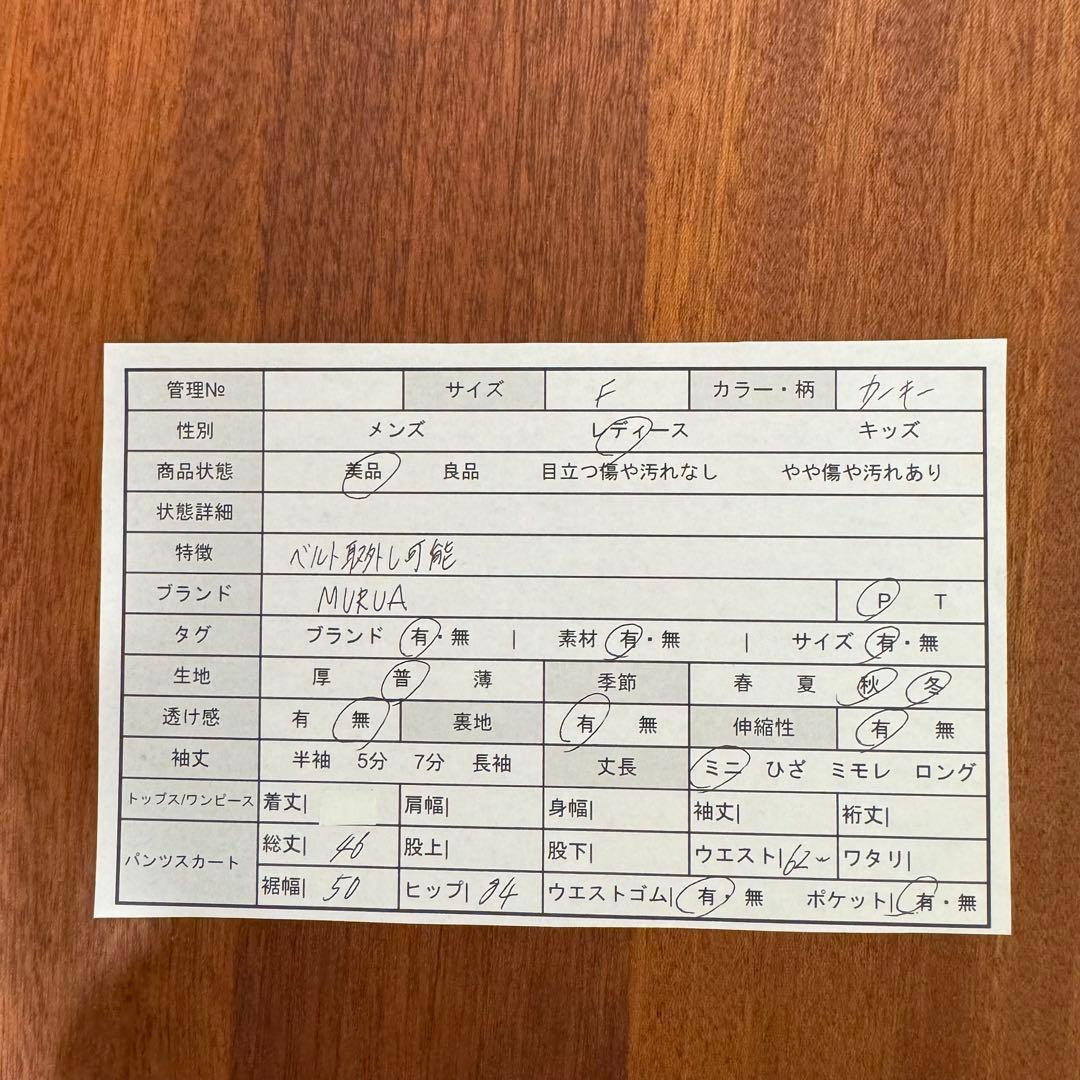 管理№ サイズ F カラー・柄 カーキー
性別 メンズ レディース キッズ
商品状態 美品 良品 目立つ傷や汚れなし やや傷や汚れあり
状態詳細
特徴 ベルト取外し可能
ブランド MURUA P T
タグ ブランド 有・無 | 素材 有・無 | サイズ 有・無
生地 厚 普 薄 季節 春 夏 秋 冬
透け感 有 無 裏地 有 無 伸縮性 有 無
袖丈 半袖 5分 7分 長袖 丈長 ミニ ひざ ミモレ ロング
トップス/ワンピース 着丈| 肩幅| 身幅| 袖丈| 裄丈|
パンツスカート 総丈| 46 股上| 股下| ウエスト| 62~ ワタリ|
裾幅| 50 ヒップ| 84 ウエストゴム| 有・無 ポケット| 有・無